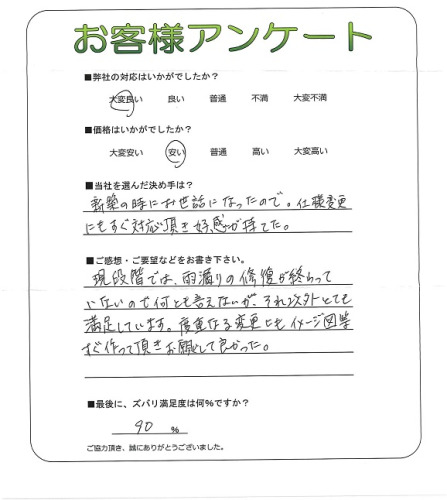 お客様アンケート
■弊社の対応はいかがでしたか？
大変良い 良い 普通 不満 大変不満
■価格はいかがでしたか？
大変安い 安い 普通 高い 大変高い
■当社を選んだ決め手は？
新築の時にお世話になったので。仕様変更
にもすぐ対応頂き好感が持てた。
■ご感想・ご要望などをお書き下さい。
現段階では、雨漏りの修復が終わって
いないので何とも言えないが、それ以外とても
満足しています。度重なる変更にも、イメージ図等
すぐ作って頂きお願いして良かった。
■最後に、ズバリ満足度は何%ですか？
90 %
ご協力頂き、誠にありがとうございました。